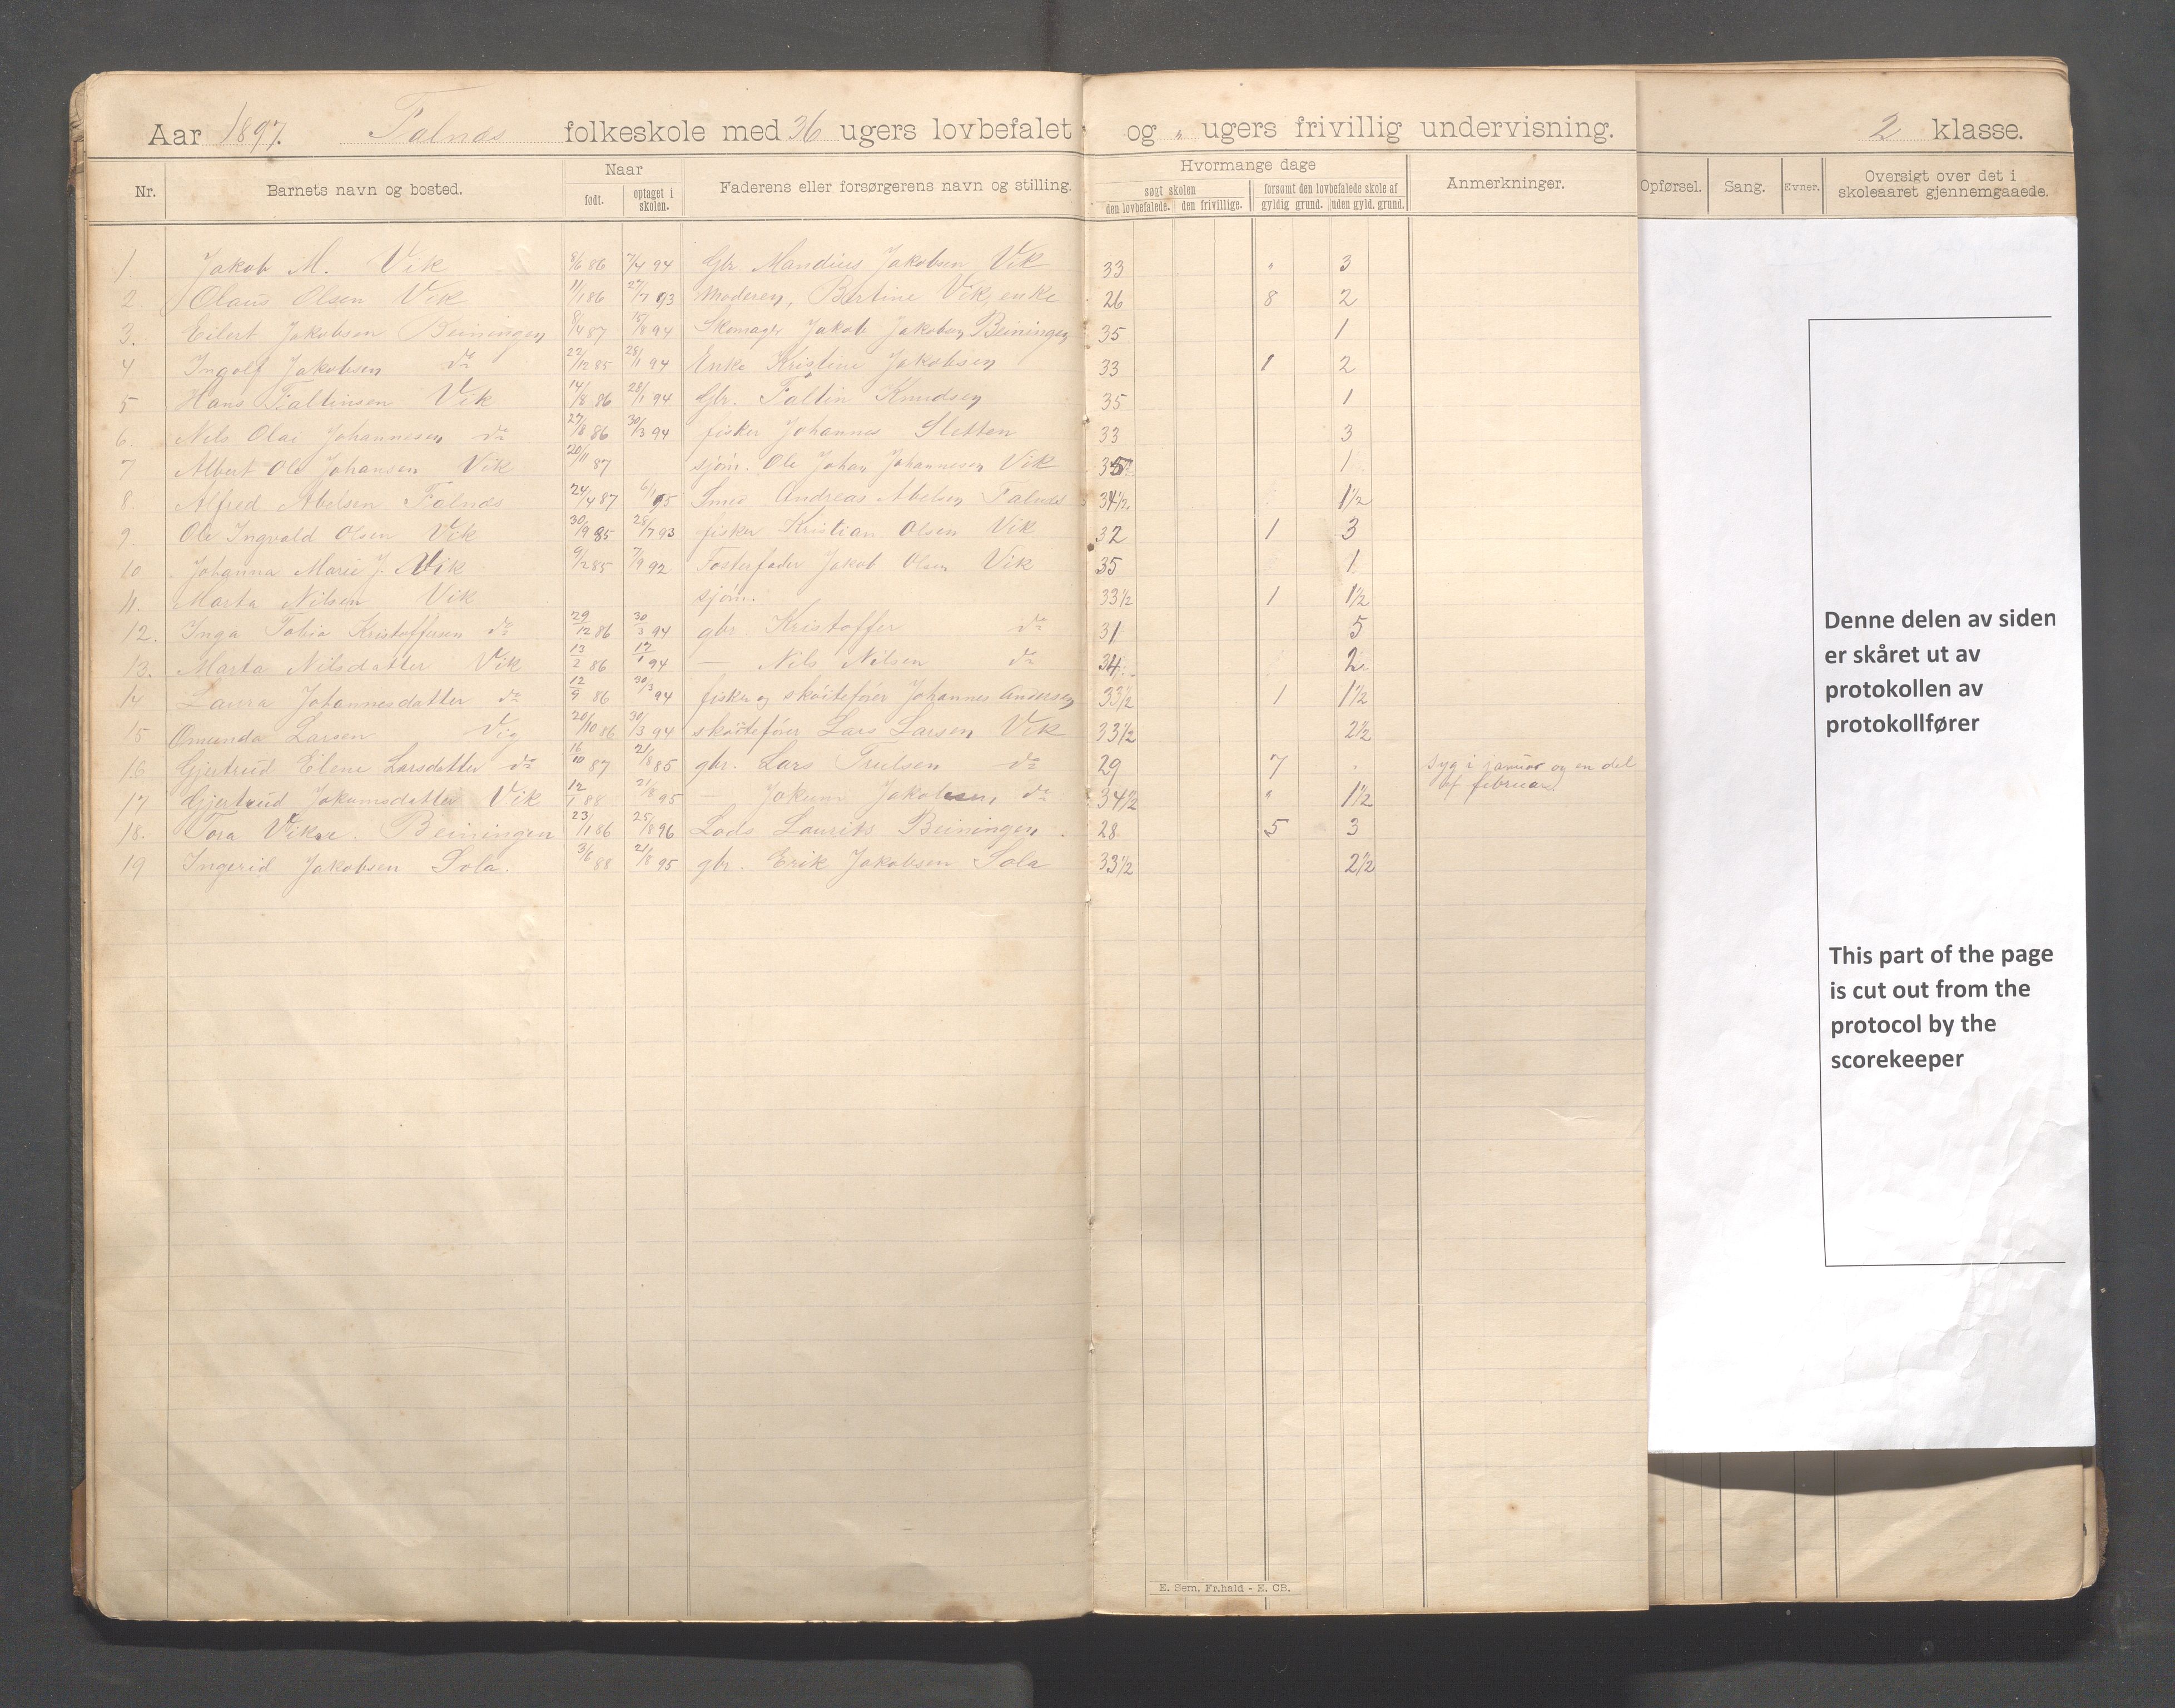 Aar 1897. Falnæs folkeskole med 36 ugers lovbefalet og " ugers frivillig undervisning. 2 klasse.
Nr. Barnets navn og bosted. Naar født. optaget i skolen. Faderens eller forsørgerens navn og stilling. Hvormange dage søgt skolen den lovbefalede. den frivillige. forsømt den lovbefalede skole af gyldig grund. uden gyld. grund. Anmerkninger. Opførsel. Sang. Evner. Oversigt over det i skoleaaret gjennemgaaede.
1 Jakob M. Vik 8/6 86 7/4 94 Gbr Mandius Jakobsen Vik 33 " 3
2. Olaus Olsen Vik 11/1 86 27/7 93 Moderen, Bertine Vik, enke 26 8 2
3. Eilert Jakobsen Beiningen 8/4 87 15/8 94 Skomager Jakob Jakobsen Beiningen 35 1
4 Ingolf Jakobsen do 22/12 85 28/1 94 Enke Kristine Jakobsen 33 1 2
5 Hans Faltinsen Vik 14/8 86 28/1 94 Gbr. Faltin Knudsen 35 1
6. Nils Olai Johannesen do 27/8 86 30/3 94 fisker Johannes Sletten 33 3
7 Albert Ole Johansen Vik 20/11 87 sjøm. Ole Johan Johannesen Vik 35 1
8. Alfred Abelsen Falnæs 24/4 87 6/1 95 Smed Andreas Abelsen Falnæs 34½ 1½
9. Ole Ingvald Olsen Vik 30/9 85 28/7 93 fisker Kristian Olsen Vik 32 1 3
10 Johanna Marie J. Vik 9/2 85 7/9 92 Fosterfader Jakob Olsen Vik 35 1
11. Marta Nilsen Vik sjøm. 33½ 1 1½
12. Inga Tobia Kristoffersen do 29/12 86 30/3 94 gbr. Kristoffer do 31 5
13. Marta Nilsdatter Vik 13/2 86 17/1 94 — Nils Nilsen do 34 2
14 Laura Johannesdatter do 12/9 86 30/3 94 fisker og skøitefører Johannes Andersen 33½ 1 1½
15 Omunda Larsen Vig 20/10 86 30/3 94 skøitefører Lars Larsen Vik 33½ 2½
16 Gjertrud Elene Larsdatter do 16/10 87 21/8 85 gbr. Lars Trulsen do 29 7 " syg i januar og en del
af februar.
17 Gjertrud Jokumsdatter Vik 12/1 88 21/8 95 — Jokum Jakobsen, do 34½ " 1½
18. Tora Viksr. Beiningen 23/1 86 25/8 96 Lods Laurits Beiningen 28 5 3
19 Ingerid Jakobsen Sola. 3/6 88 21/8 95 gbr. Erik Jakobsen Sola 33½ 2½
Denne delen av siden
er skåret ut av
protokollen av
protokollfører
This part of the page
is cut out from the
protocol by the
scorekeeper
E. Sem, Fr.hald - E. CB.